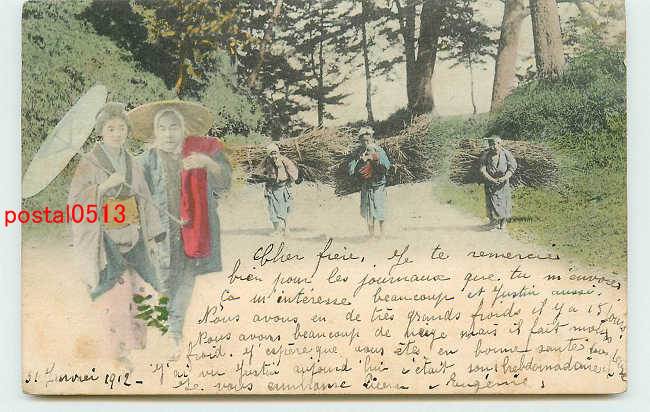 postal0513
Cher frère, Je te remercie
bien pour les journaux que tu m'envoies
Ça m'intéresse beaucoup et Justin aussi.
Nous avons eu de très grands froids il y a 15 jours
Nous avons beaucoup de neige mais il fait moins
froid. J'espère que vous êtes en bonne santé tous
J'ai vu Justin aujourd'hui c'était son hebdomadaire
Je vous embrasse Eugénie
31 Janvier 1912 -